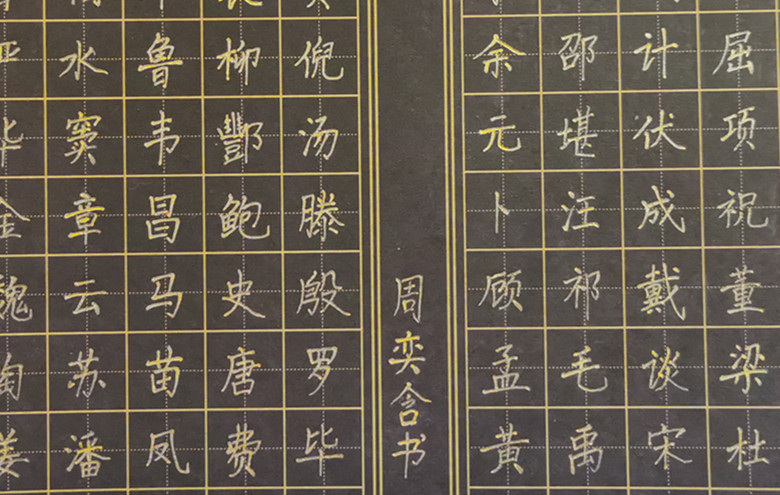 严华金魏陶姜
水窦章云苏潘
鲁韦昌马苗凤
柳酆鲍史唐费
倪汤滕殷罗毕
周奕含书
余元卜顾孟黄
邵堪汪祁毛禹
计伏成戴谈宋
屈项祝董梁杜